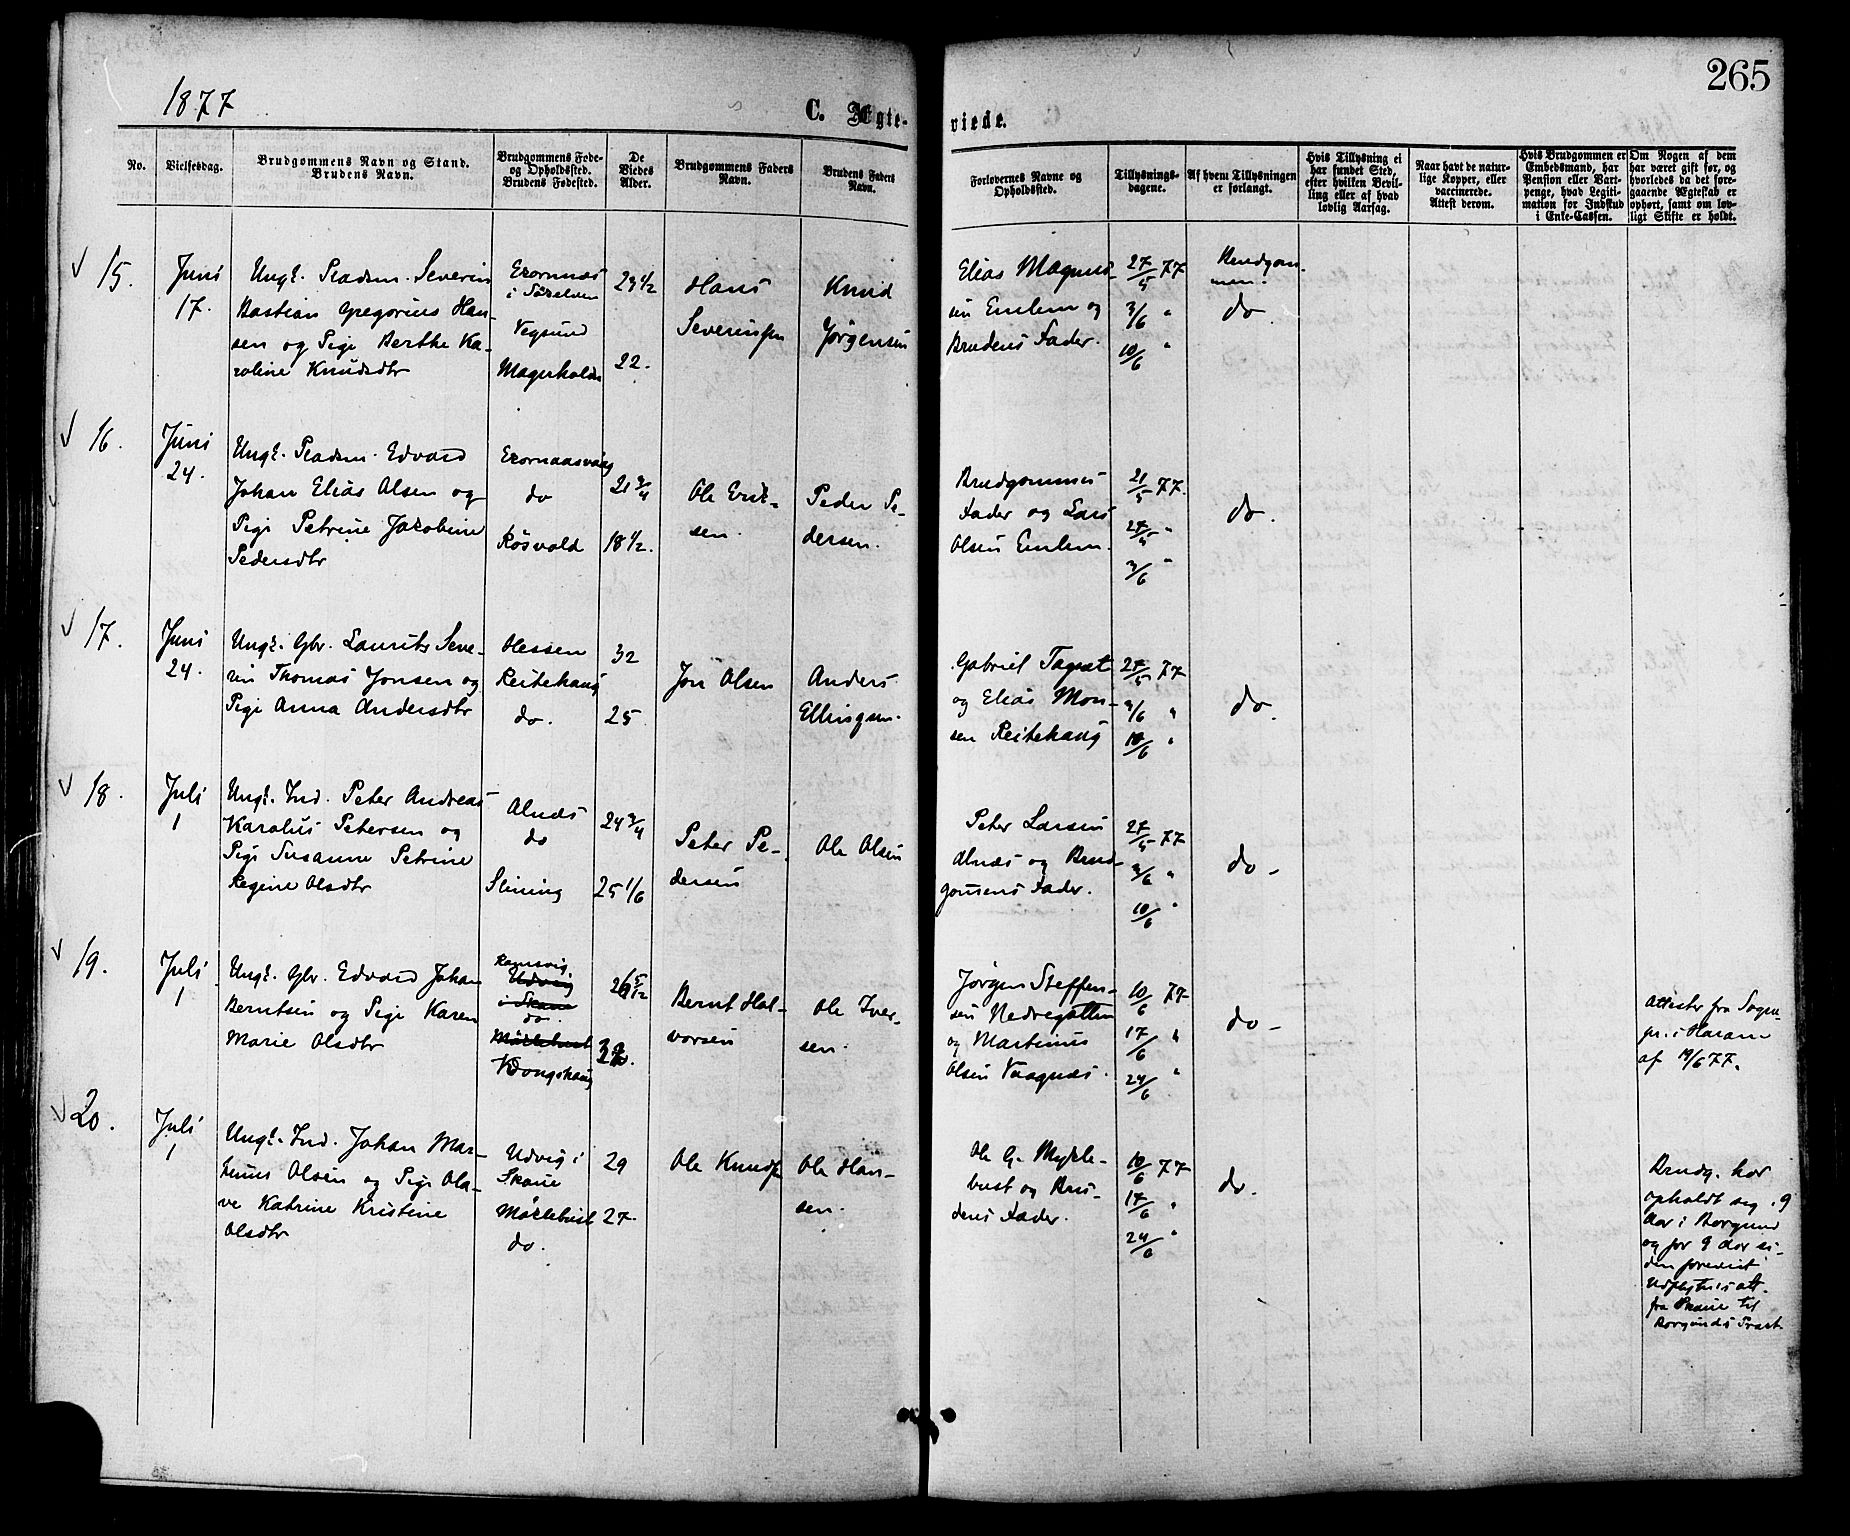 1877
C. Ægte-
viede.
265
No.
Vielsesdag.
Brudgommens Navn og Stand.
Brudens Navn.
Brudgommens Føde-
og Opholdssted.
Brudens Fødested.
De
Viedes
Alder.
Brudgommens Faders
Navn.
Brudens Faders
Navn.
Forlovernes Navne og
Opholdssted.
Tillysnings-
dagene.
Af hvem Tillysningen
er forlangt.
Hvis Tillysning ei
har fundet Sted,
efter hvilken Bevil-
ling eller af hvad
lovlig Aarsag.
Naar havt de natur-
lige Kopper, eller
vaccinerede.
Attest derom.
Hvis Brudgommen er
Embedsmand, har
Pension eller Vart-
penge, hvad Legiti-
mation for Indskud
i Enke-Cassen.
Om Nogen af dem
har været gift før, og
hvorledes da det fore-
gaaende Ægteskab er
ophørt, samt om lov-
ligt Skifte er holdt.
15.
Juni
17.
Ungk. Pladsm. Severin
Bastian Gregorius Han-
sen og Pige Berthe Ka-
roline Knudsdtr
i
Vegsund
Magerholm
23 1/2
22.
Hans
Severinsen
Knud
Jørgensen
Elias Magnus-
sen Emlem og
Brudens Fader.
27/5 77
3/6 "
10/6 "
Brudgom-
men.
do
16.
Juni
24.
Ungk. Pladsm. Edvard
Johan Elias Olsen og
Pige Petrine Jakobine
Pedersdtr
do
Røsvold
21 3/4
18 1/2.
Ole Erik-
sen.
Peder Pe-
dersen.
Brudgommens
Fader og Lars
Olsen Emlem.
21/5 77.
27/5 "
3/6 "
do.
17.
Juni
24.
Ungk. Gbr. Laurits Seve-
rin Thomas Jonsen og
Pige Anna Andersdtr
Hessen
Reitehaug
do.
32
25.
Jon Olsen
Anders
Ellingsen.
Gabriel
og Elias Mon-
sen Reitehaug
27/5 77
3/6 "
10/6 "
do.
18.
Juli
1
Ungk. Ind. Peter Andreas
Karolus Petersen og
Pige Susanne Petrine
Regine Olsdtr
Alnæs
do
Slining
24 3/4
25 1/6
Peter Pe-
dersen
Ole Olsen
Peter Larsen
Alnæs og Brud-
gomens Fader.
27/5 77
3/6 "
10/6 "
do -
19.
Juli
1
Ungk. Gbr. Edvard Johan
Berntsen og Pige Karen
Marie Olsdtr
Ramsvig
Udvig
i Skaue
do
Mørlebust
Kongshaug
5/12
Bernt Hal-
vorsen
Ole Iver-
sen.
Jørgen Steffen-
sen Nedregotten
og Martinus
Olsen Vaagnæs.
10/6 77
17/6 "
24/6 "
do -
Attester fra Sogne-
pr. i Haram
af 19/6 77.
20.
Juli
1
Ungk. Ind. Johan Mar-
tinus Olsen og Pige Ola-
ve Katrine Kristine
Olsdtr
Udvig i
Skaue
Mørlebust
do.
29
27.
Ole Knudsen
Ole Han-
sen.
Ole G. Mykle-
bust og Bru-
dens Fader.
10/6 77
17/6 "
24/6 "
do.
Brudg. har
opholdt seg i 9
Aar i Borgund
og for 9 Aar si-
den forevist
Udflytnis att.
fra Skaue til
Borgunds Præst.